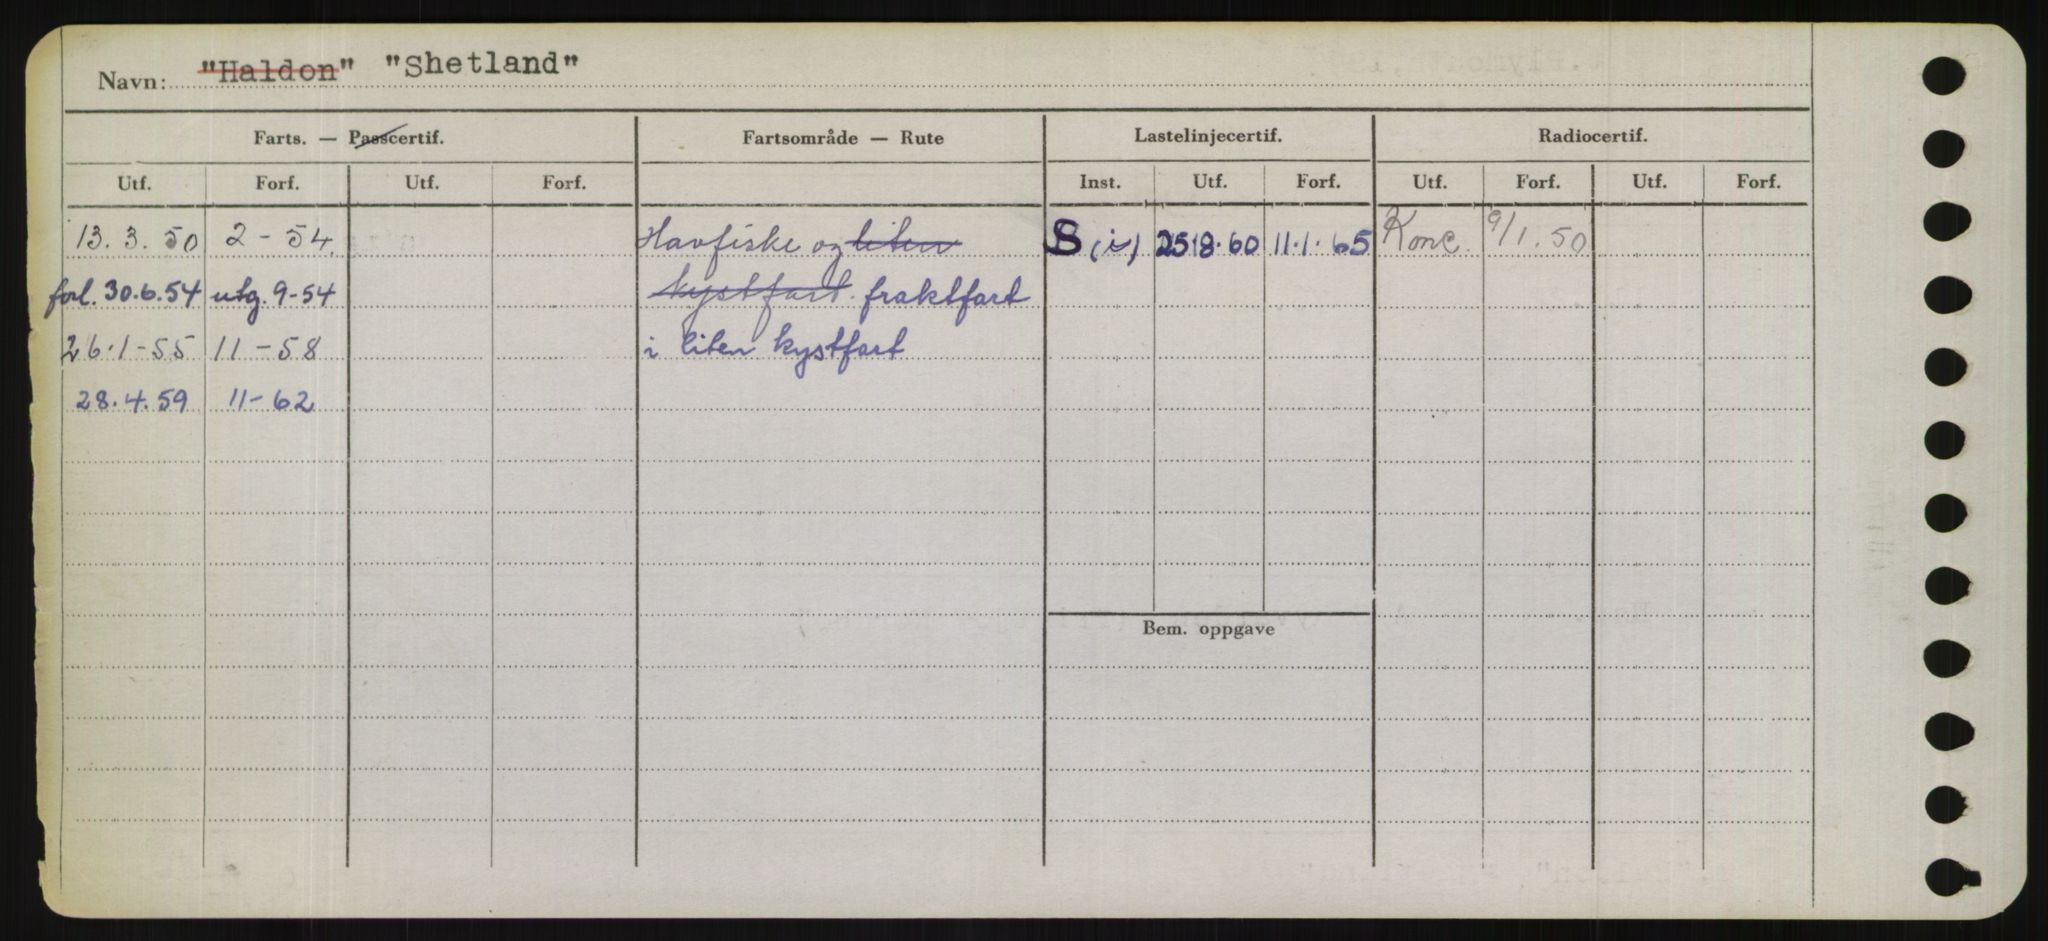 Navn: "Haldon" "Shetland"
Farts. — Passcertif. Fartsområde — Rute Lastelinjecertif. Radiocertif.
Utf. Forf. Utf. Forf. Inst. Utf. Forf. Utf. Forf. Utf. Forf.
13.3.50 2-54 Havfiske og liten S (i) 25.8.60 11.1.65 Konc. 9/1.50
forl. 30.6.54 utg. 9-54 kystfart. fraktfart
26.1-55 11-58 i liten kystfart
28.4.59 11-62
Bem. oppgave